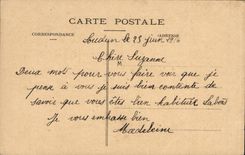 CARTE POSTALE
CORRESPONDANCE ADRESSE
le 25 juin
Chère Suzanne
M
Deux mot pour vous faire voir que je
pense à vous je suis bien contente de
savoir que vous êtes bien habitué Labas
Je vous embrasse bien
Madeleine